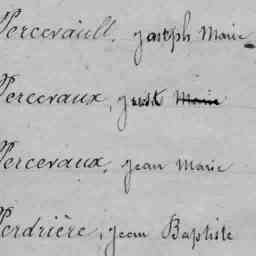 Percevault, joseph Marie
Percevaux, Marie
Percevaux, jean Marie
Perdrière, jean Baptiste